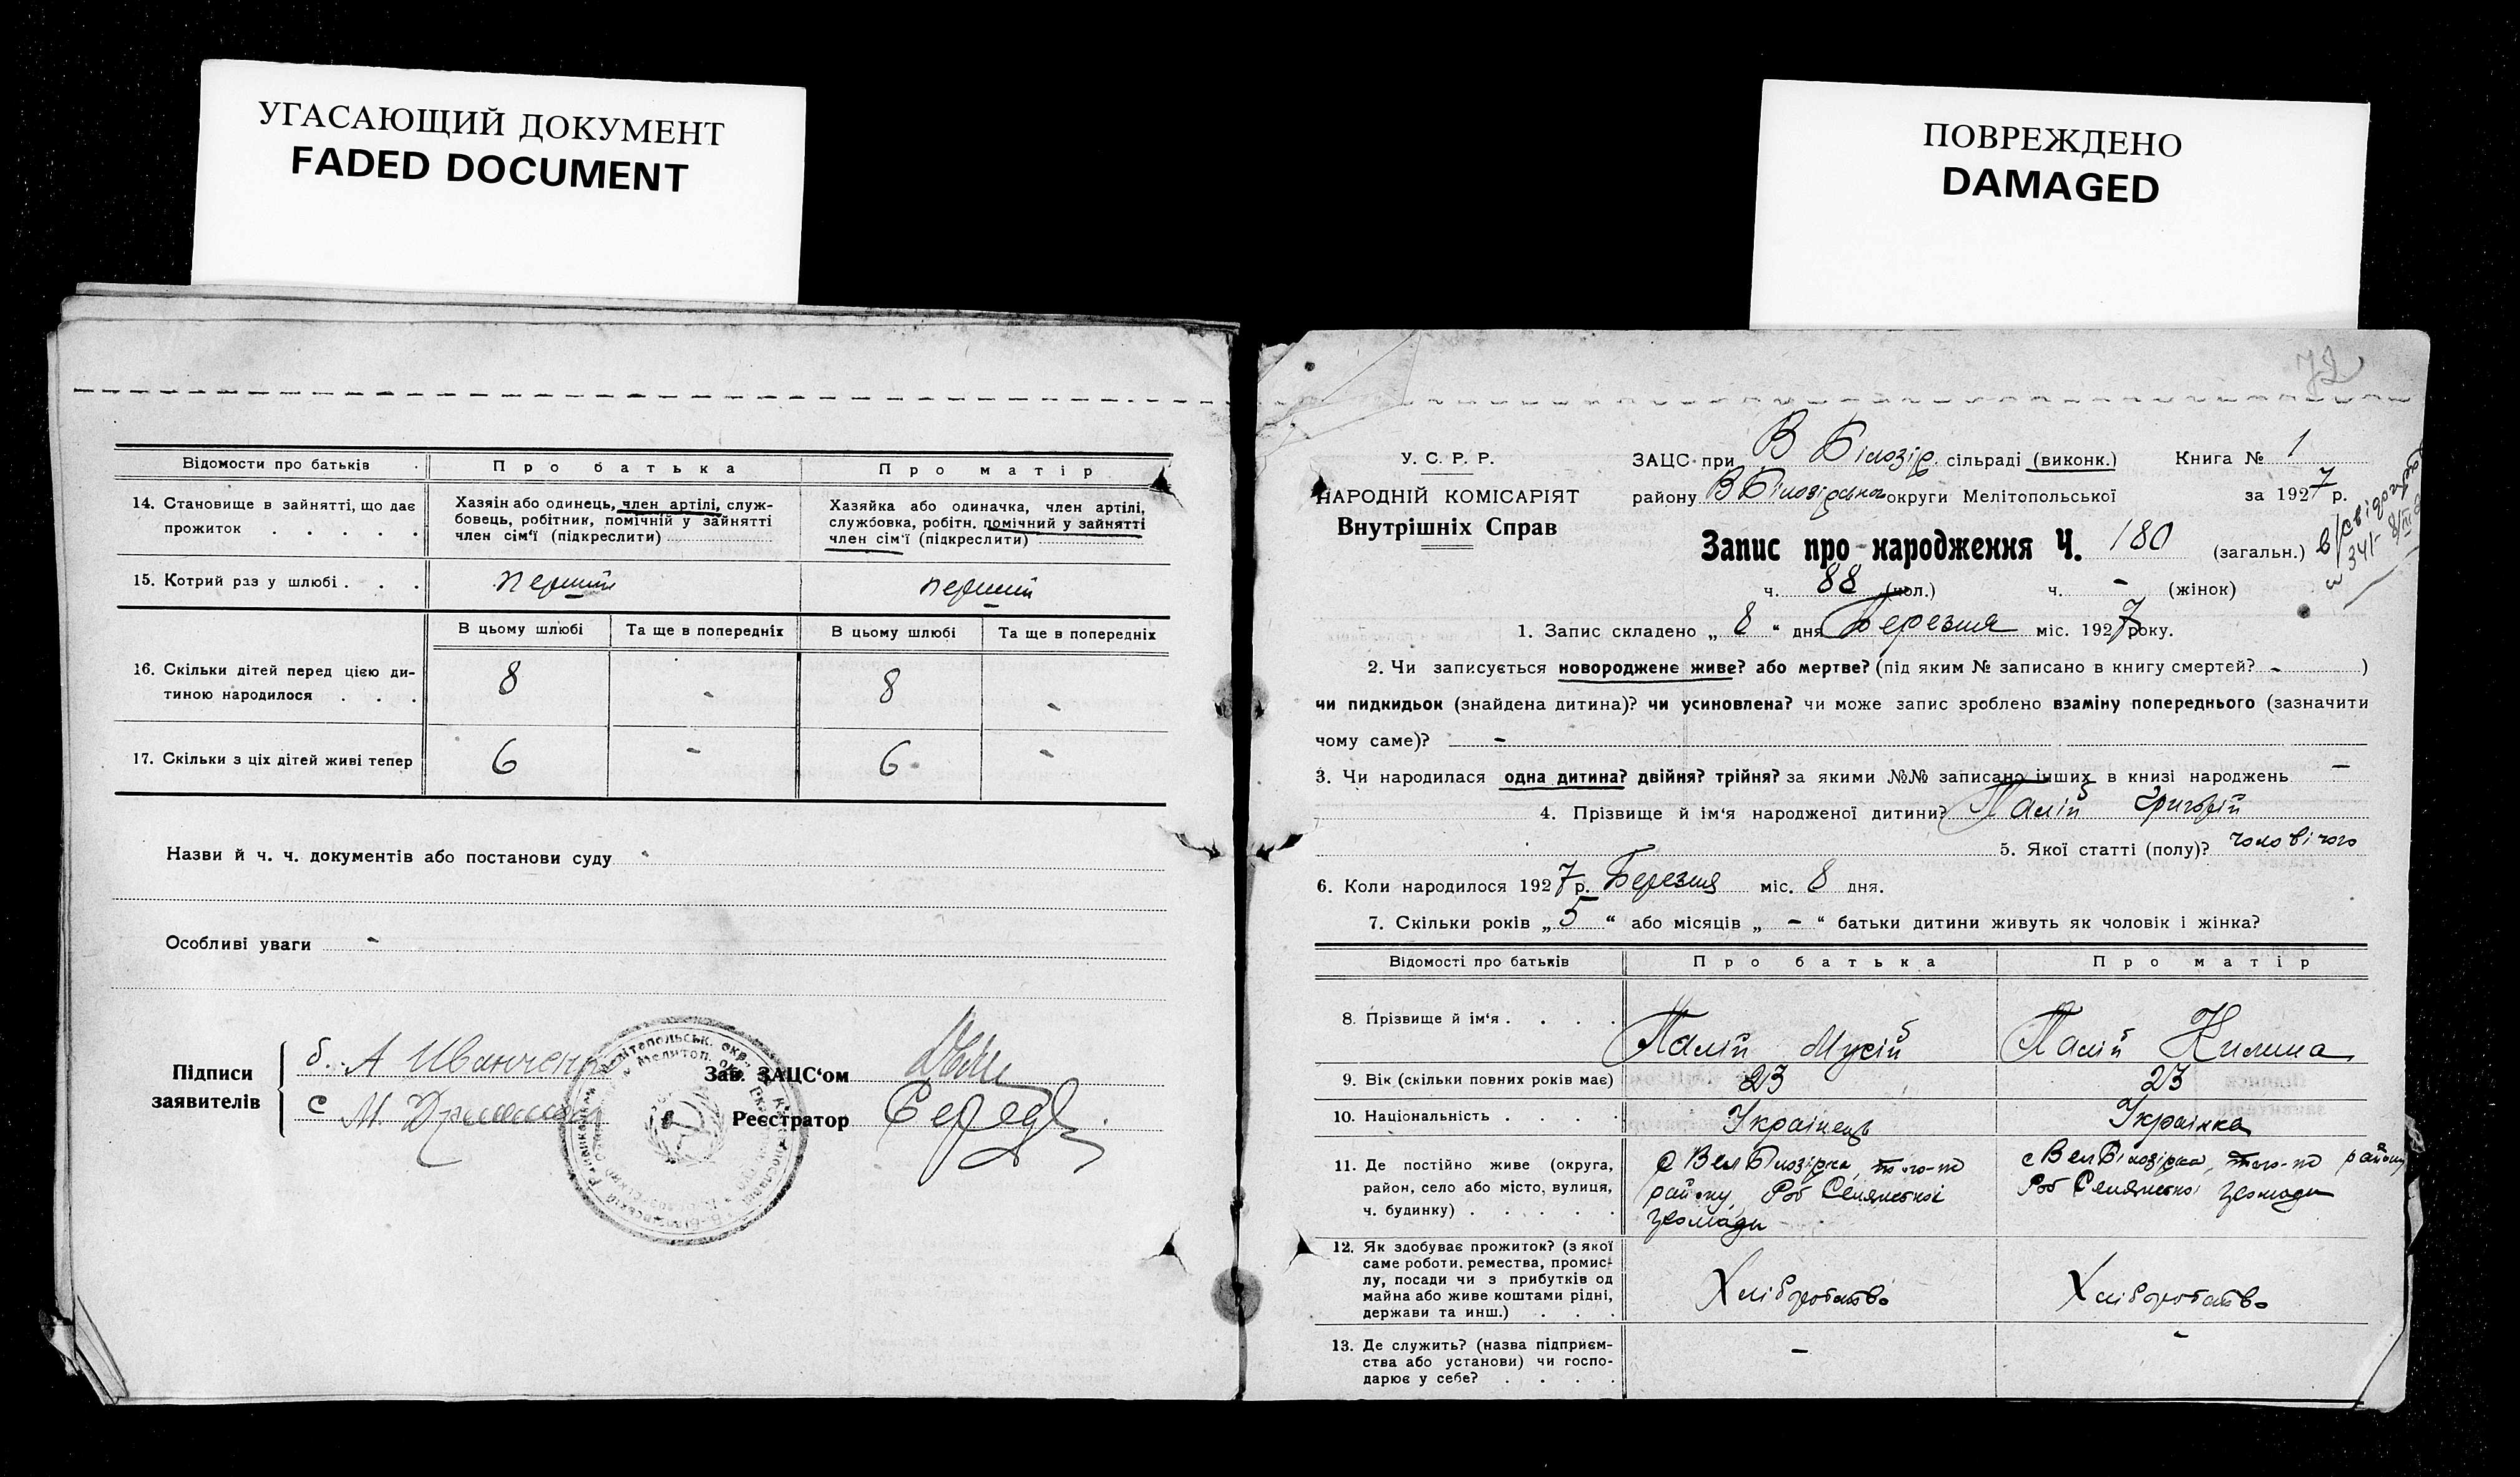 УГАСАЮЩИЙ ДОКУМЕНТ
FADED DOCUMENT
ПОВРЕЖДЕНО
DAMAGED
Відомости про батьків
Про батька
Про матір
14. Становище в зайнятті, що дає
прожиток . . . . .
Хазяін або одинець, член артілі, служ-
бовець, робітник, помічній у зайнятті
член сім'ї (підкреслити)
Хазяйка або одиначка, член артілі,
службовка, робітн. помічний у зайнятті
член сім'ї (підкреслити)
15. Котрий раз у шлюбі . . .
перший
перший
В цьому шлюбі
Та ще в попередніх
В цьому шлюбі
Та ще в попередніх
16. Скільки дітей перед цією ди-
тиною народилося . . .
8 - 8 -
17. Скільки з ціх дітей живі тепер
6 - 6 -
Назви й ч. ч. документів або постанови суду -
Особливі уваги -
Підписи
заявителів
б. А Иванченко
с М.
Зав. ЗАЦС'ом
Реєстратор
Серед
72
У. С. Р. Р.
НАРОДНІЙ КОМІСАРІЯТ
Внутрішніх Справ
ЗАЦС при В Білозір. сільраді (виконк.) Книга № 1
району ВБілозірського округи Мелітопольської за 1927 р.
Запис про народження Ч. 180 (загальн.)
ч. 88 (чол.) ч. - (жінок)
в/свідоцтво
№ 341- 8/III
1. Запис складено „ 8 “ дня Березня міс. 1927 року.
2. Чи записується новороджене живе? або мертве? (під яким № записано в книгу смертей? - )
чи пидкидьок (знайдена дитина)? чи усиновлена? чи може запис зроблено взаміну попереднього (зазначити
чому саме)? -
3. Чи народилася одна дитина? двійня? трійня? за якими №№ записано інших в книзі народжень -
4. Прізвище й ім'я народженої дитини? Палій Григорій
5. Якої статті (полу)? чоловічого
6. Коли народилося 1927 р. Березня міс. 8 дня.
7. Скільки років „ 5 “ або місяців „ - “ батьки дитини живуть як чоловік і жінка?
Відомості про батьків
Про батька
Про матір
8. Прізвище й ім'я . . . .
Палій Мусій
Палій Килина
9. Вік (скільки повних років має)
23
23
10. Національність . . . .
Українець
Українка
11. Де постійно живе (округа,
район, село або місто, вулиця,
ч. будинку) . . . . .
с ВелБілозірка, того-по
району, Роб Селянської
громади
с ВелБілозірка, того-по району
Роб Селянської громади
12. Як здобуває прожиток? (з якої
саме роботи, ремества, промис-
лу, посади чи з прибутків од
майна або живе коштами рідні,
держави та инш.) . . .
Хліборобство
Хліборобство
13. Де служить? (назва підприєм-
ства або установи) чи госпо-
дарює у себе? . . . .
-
-